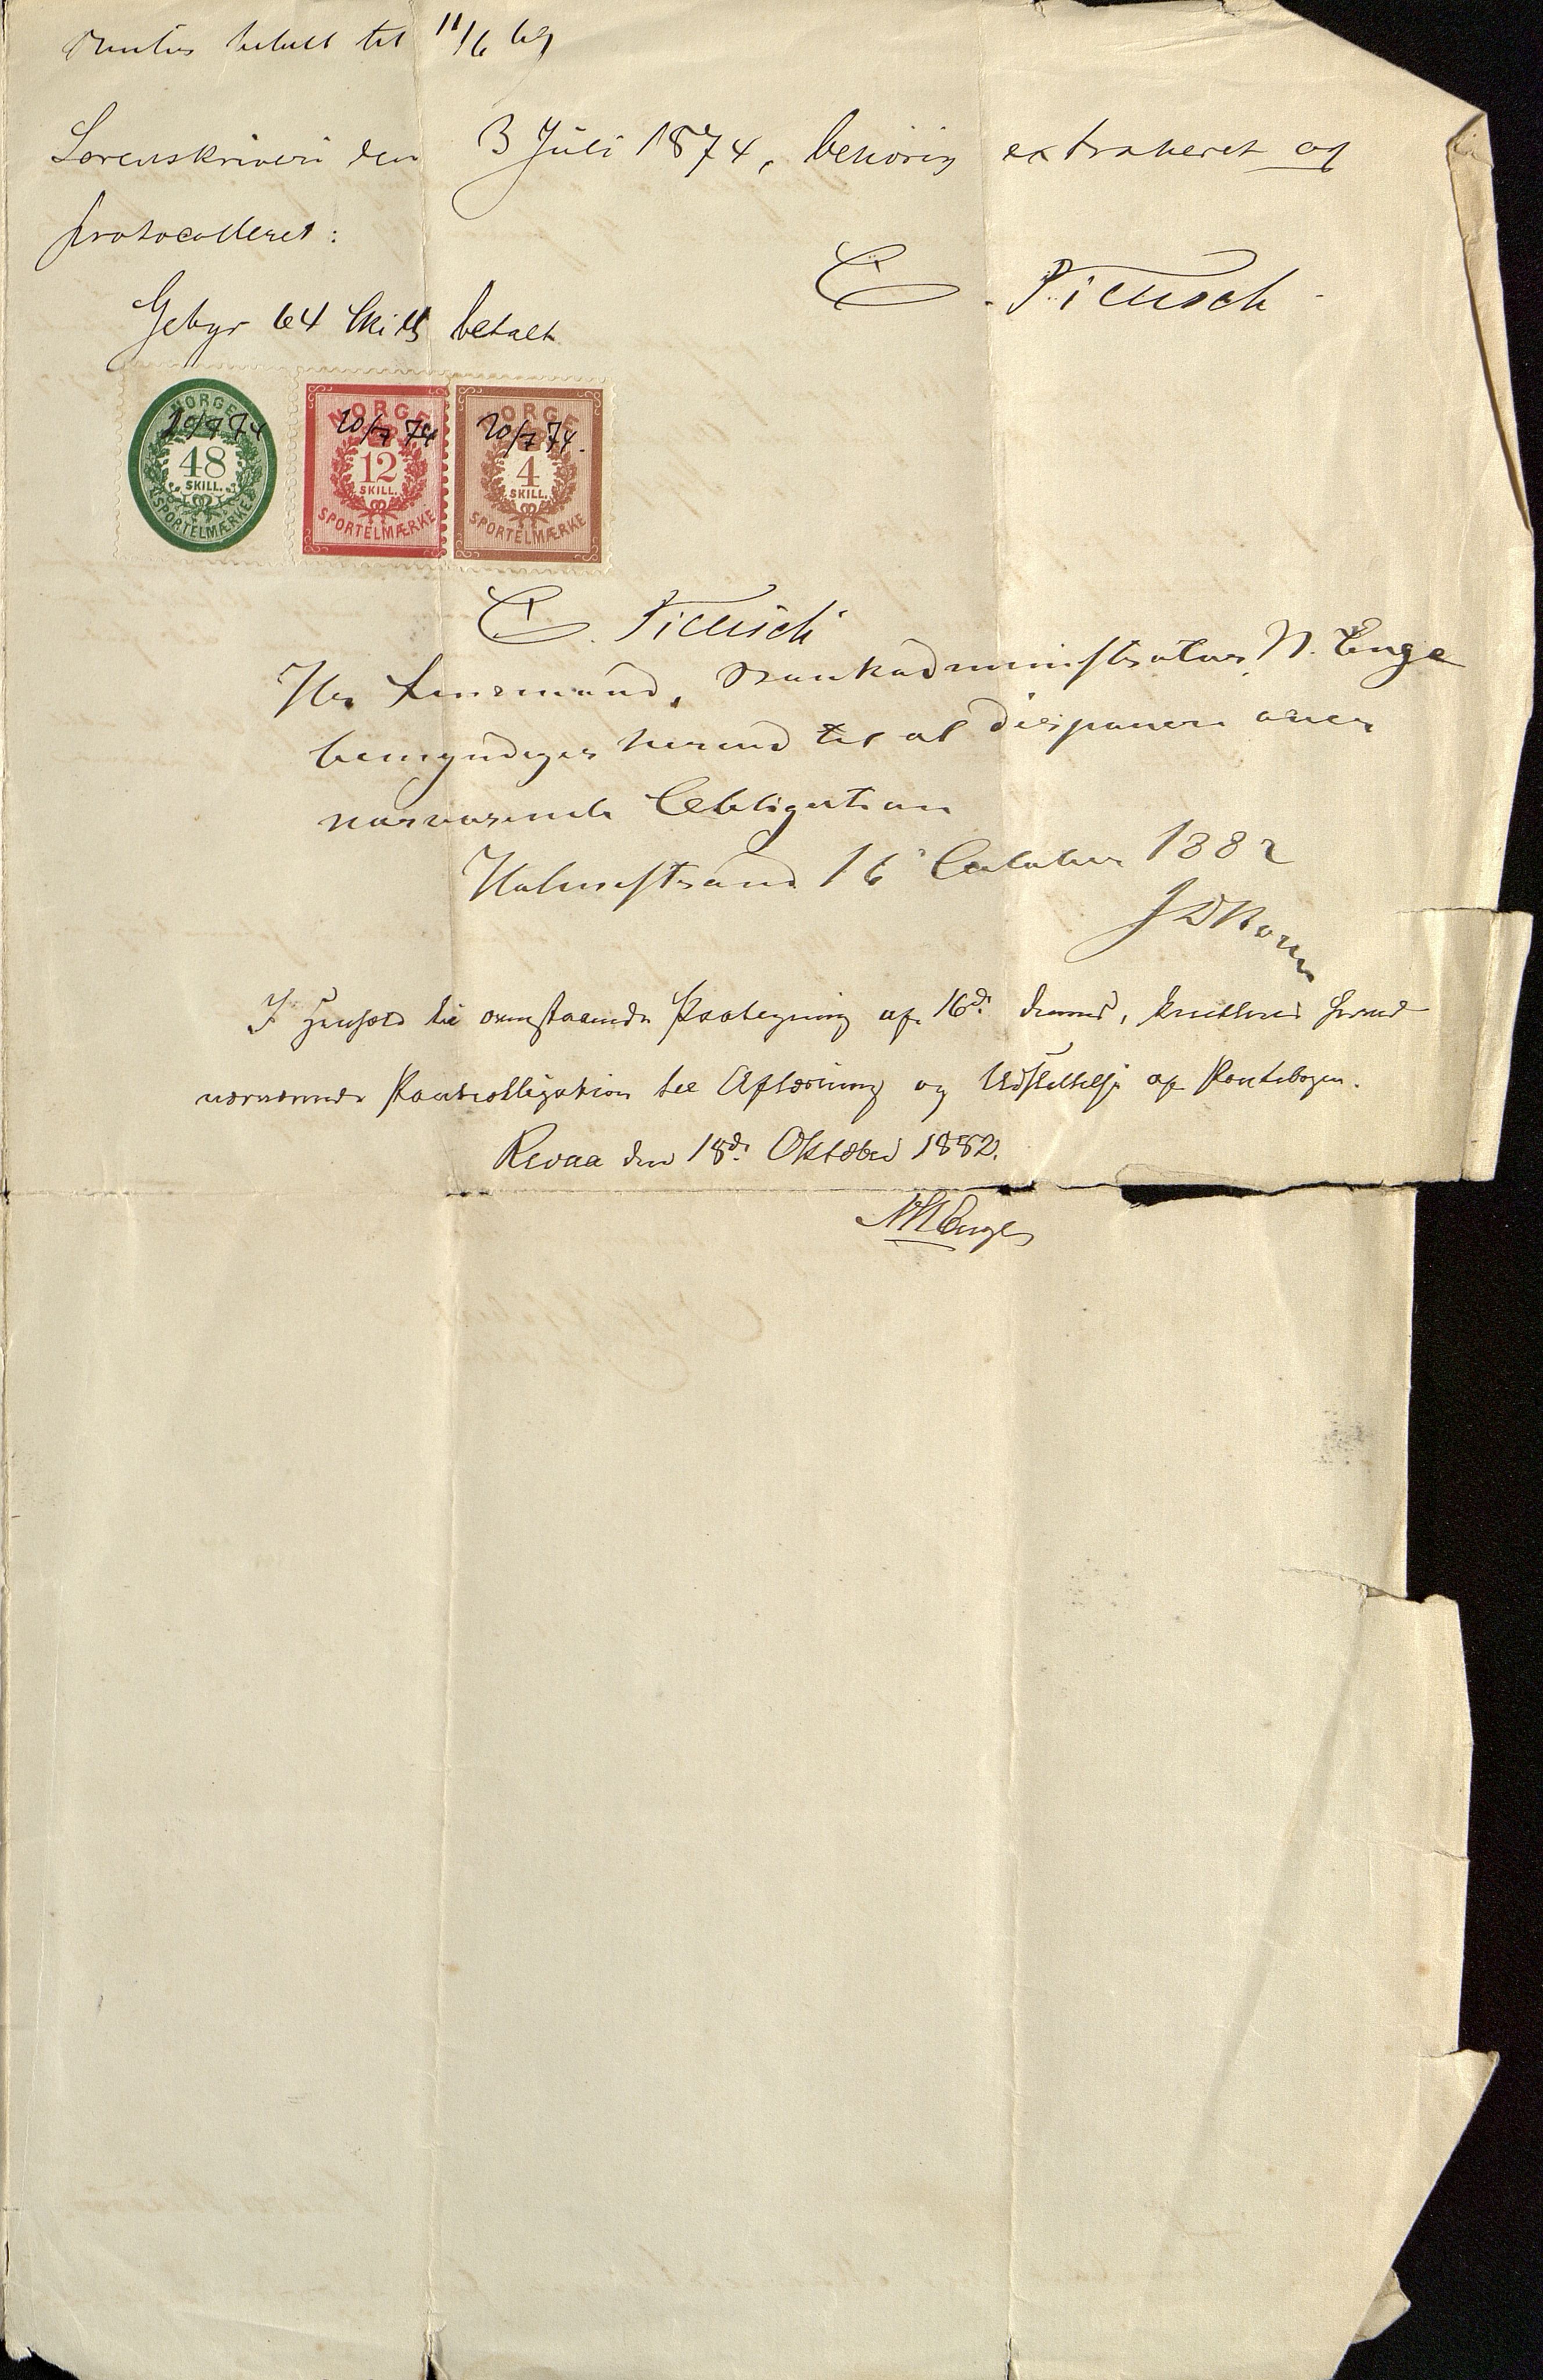 Renter betalt til 11/6 69
Sorenskriveri den 3 Juli 1874, behörig extraheret og
protocolleret:
Gebyr 64 Skill betalt
C. Fieusch
NORGE
48
SKILL.
SPORTELMÆRKE
20/7 74
NORGE
12
SKILL.
SPORTELMÆRKE
20/7 74
NORGE
4
SKILL.
SPORTELMÆRKE
20/7 74.
C. Fieusch
Hr Lensmand, Bankadministrator N. Enge
bemyndiges herved til at disponere over
nærværende Obligation
Holmestrand 16 October 1882
J D
I Henhold til ovenstaaende Paategning af 16d. dennes, kvitteres herved
nærværende Pantobligation til Aflæsning og Udslettelse af Pantebogen.
Revaa den 18d. Oktober 1882.
NHEnge